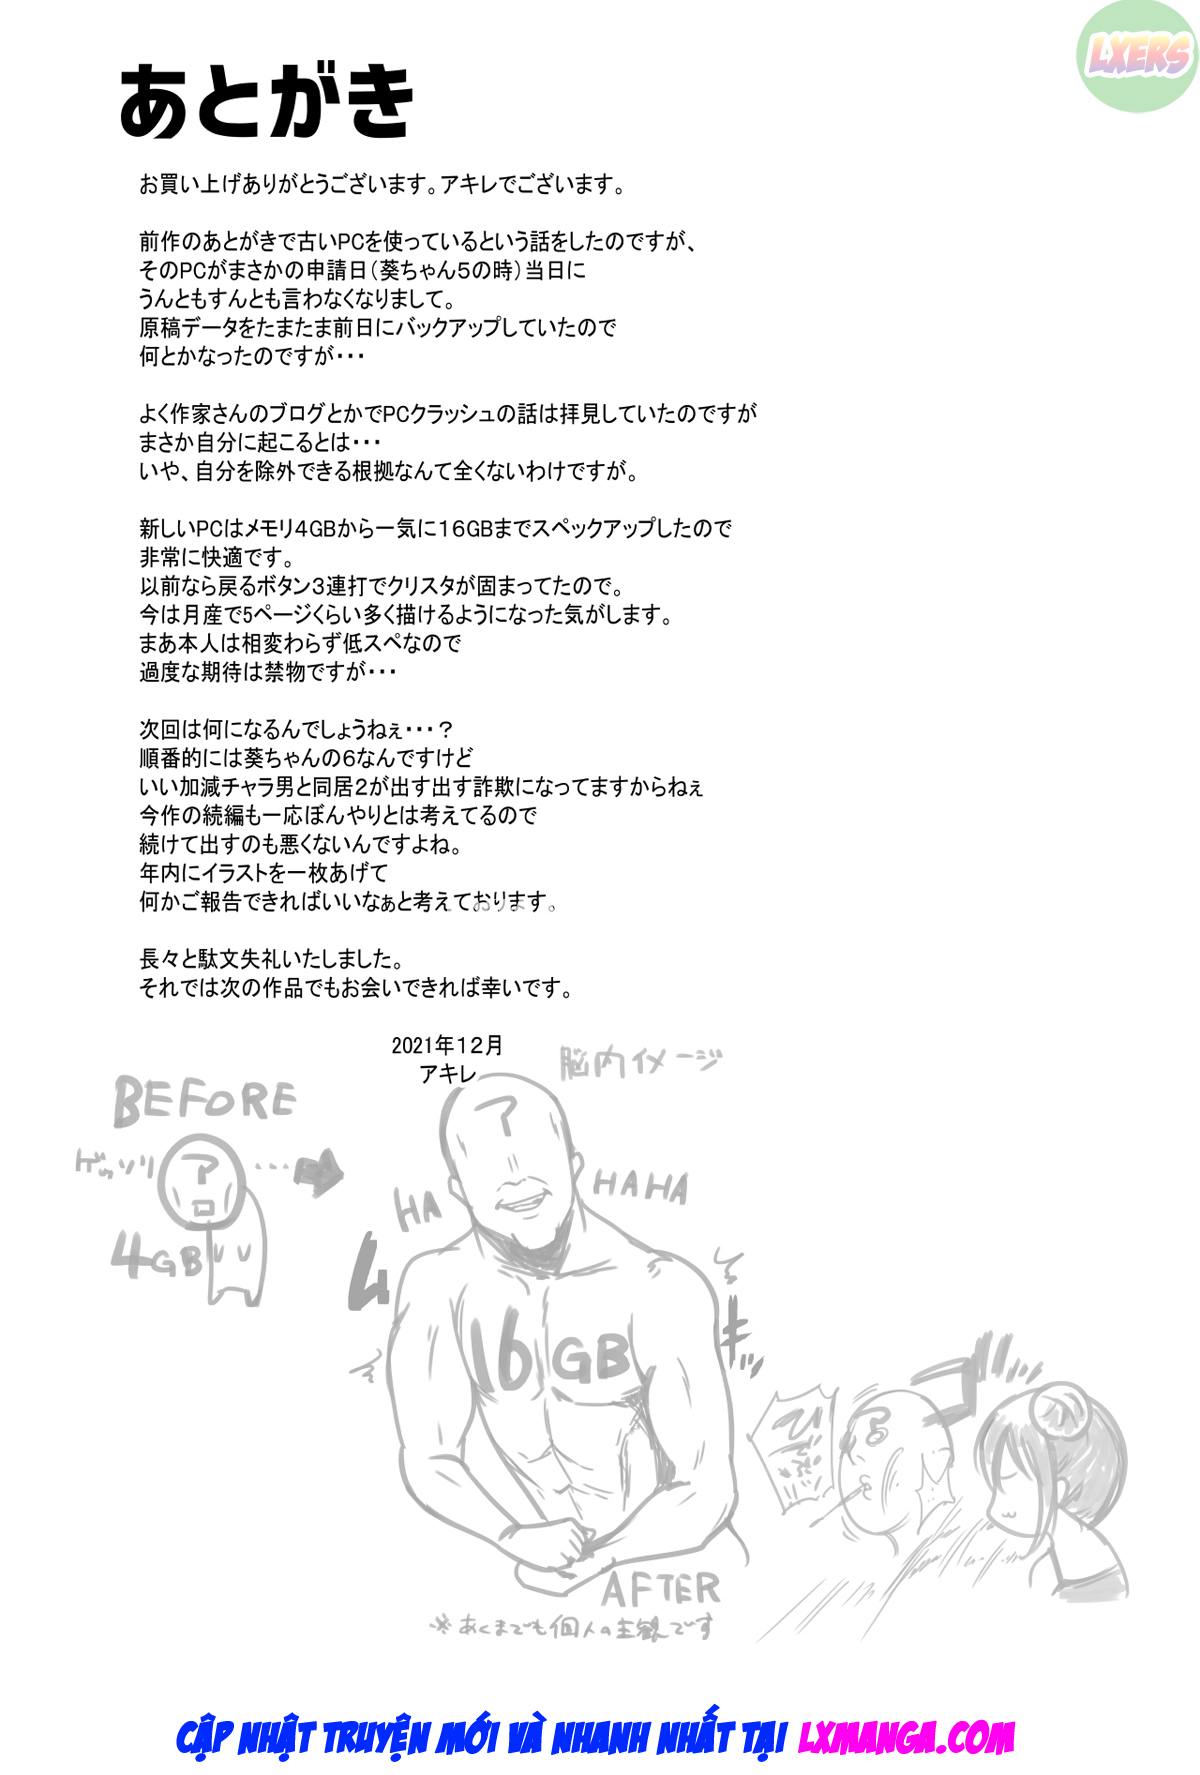 LXERS
あとがき
お買い上げありがとうございます。アキレでございます。
前作のあとがきで古いPCを使っているという話をしたのですが、
そのPCがまさかの申請日(葵ちゃん5の時)当日に
うんともすんとも言わなくなりまして。
原稿データをたまたま前日にバックアップしていたので
何とかなったのですが・・・
よく作家さんのブログとかでPCクラッシュの話は拝見していたのですが
まさか自分に起こるとは・・・
いや、自分を除外できる根拠なんて全くないわけですが。
新しいPCはメモリ4GBから一気に16GBまでスペックアップしたので
非常に快適です。
以前なら戻るボタン3連打でクリスタが固まってたので。
今は月産で5ページくらい多く描けるようになった気がします。
まあ本人は相変わらず低スペなので
過度な期待は禁物ですが・・・
次回は何になるんでしょうねぇ・・・?
順番的には葵ちゃんの6なんですけど
いい加減チャラ男と同居2が出す出す詐欺になってますからねぇ
今作の続編も一応ぼんやりとは考えてるので
続けて出すのも悪くないんですよね。
年内にイラストを一枚あげて
何かご報告できればいいなぁと考えております。
長々と駄文失礼いたしました。
それでは次の作品でもお会いできれば幸いです。
2021年12月
アキレ
脳内イメージ
BEFORE
ゲッソリ
ア
ロ
4GB
ア
HA
HAHA
ム
キッ
16GB
ア
AFTER
※あくまでも個人の主観です
CẬP NHẬT TRUYỆN MỚI VÀ NHANH NHẤT TẠI LXMANGA.COM